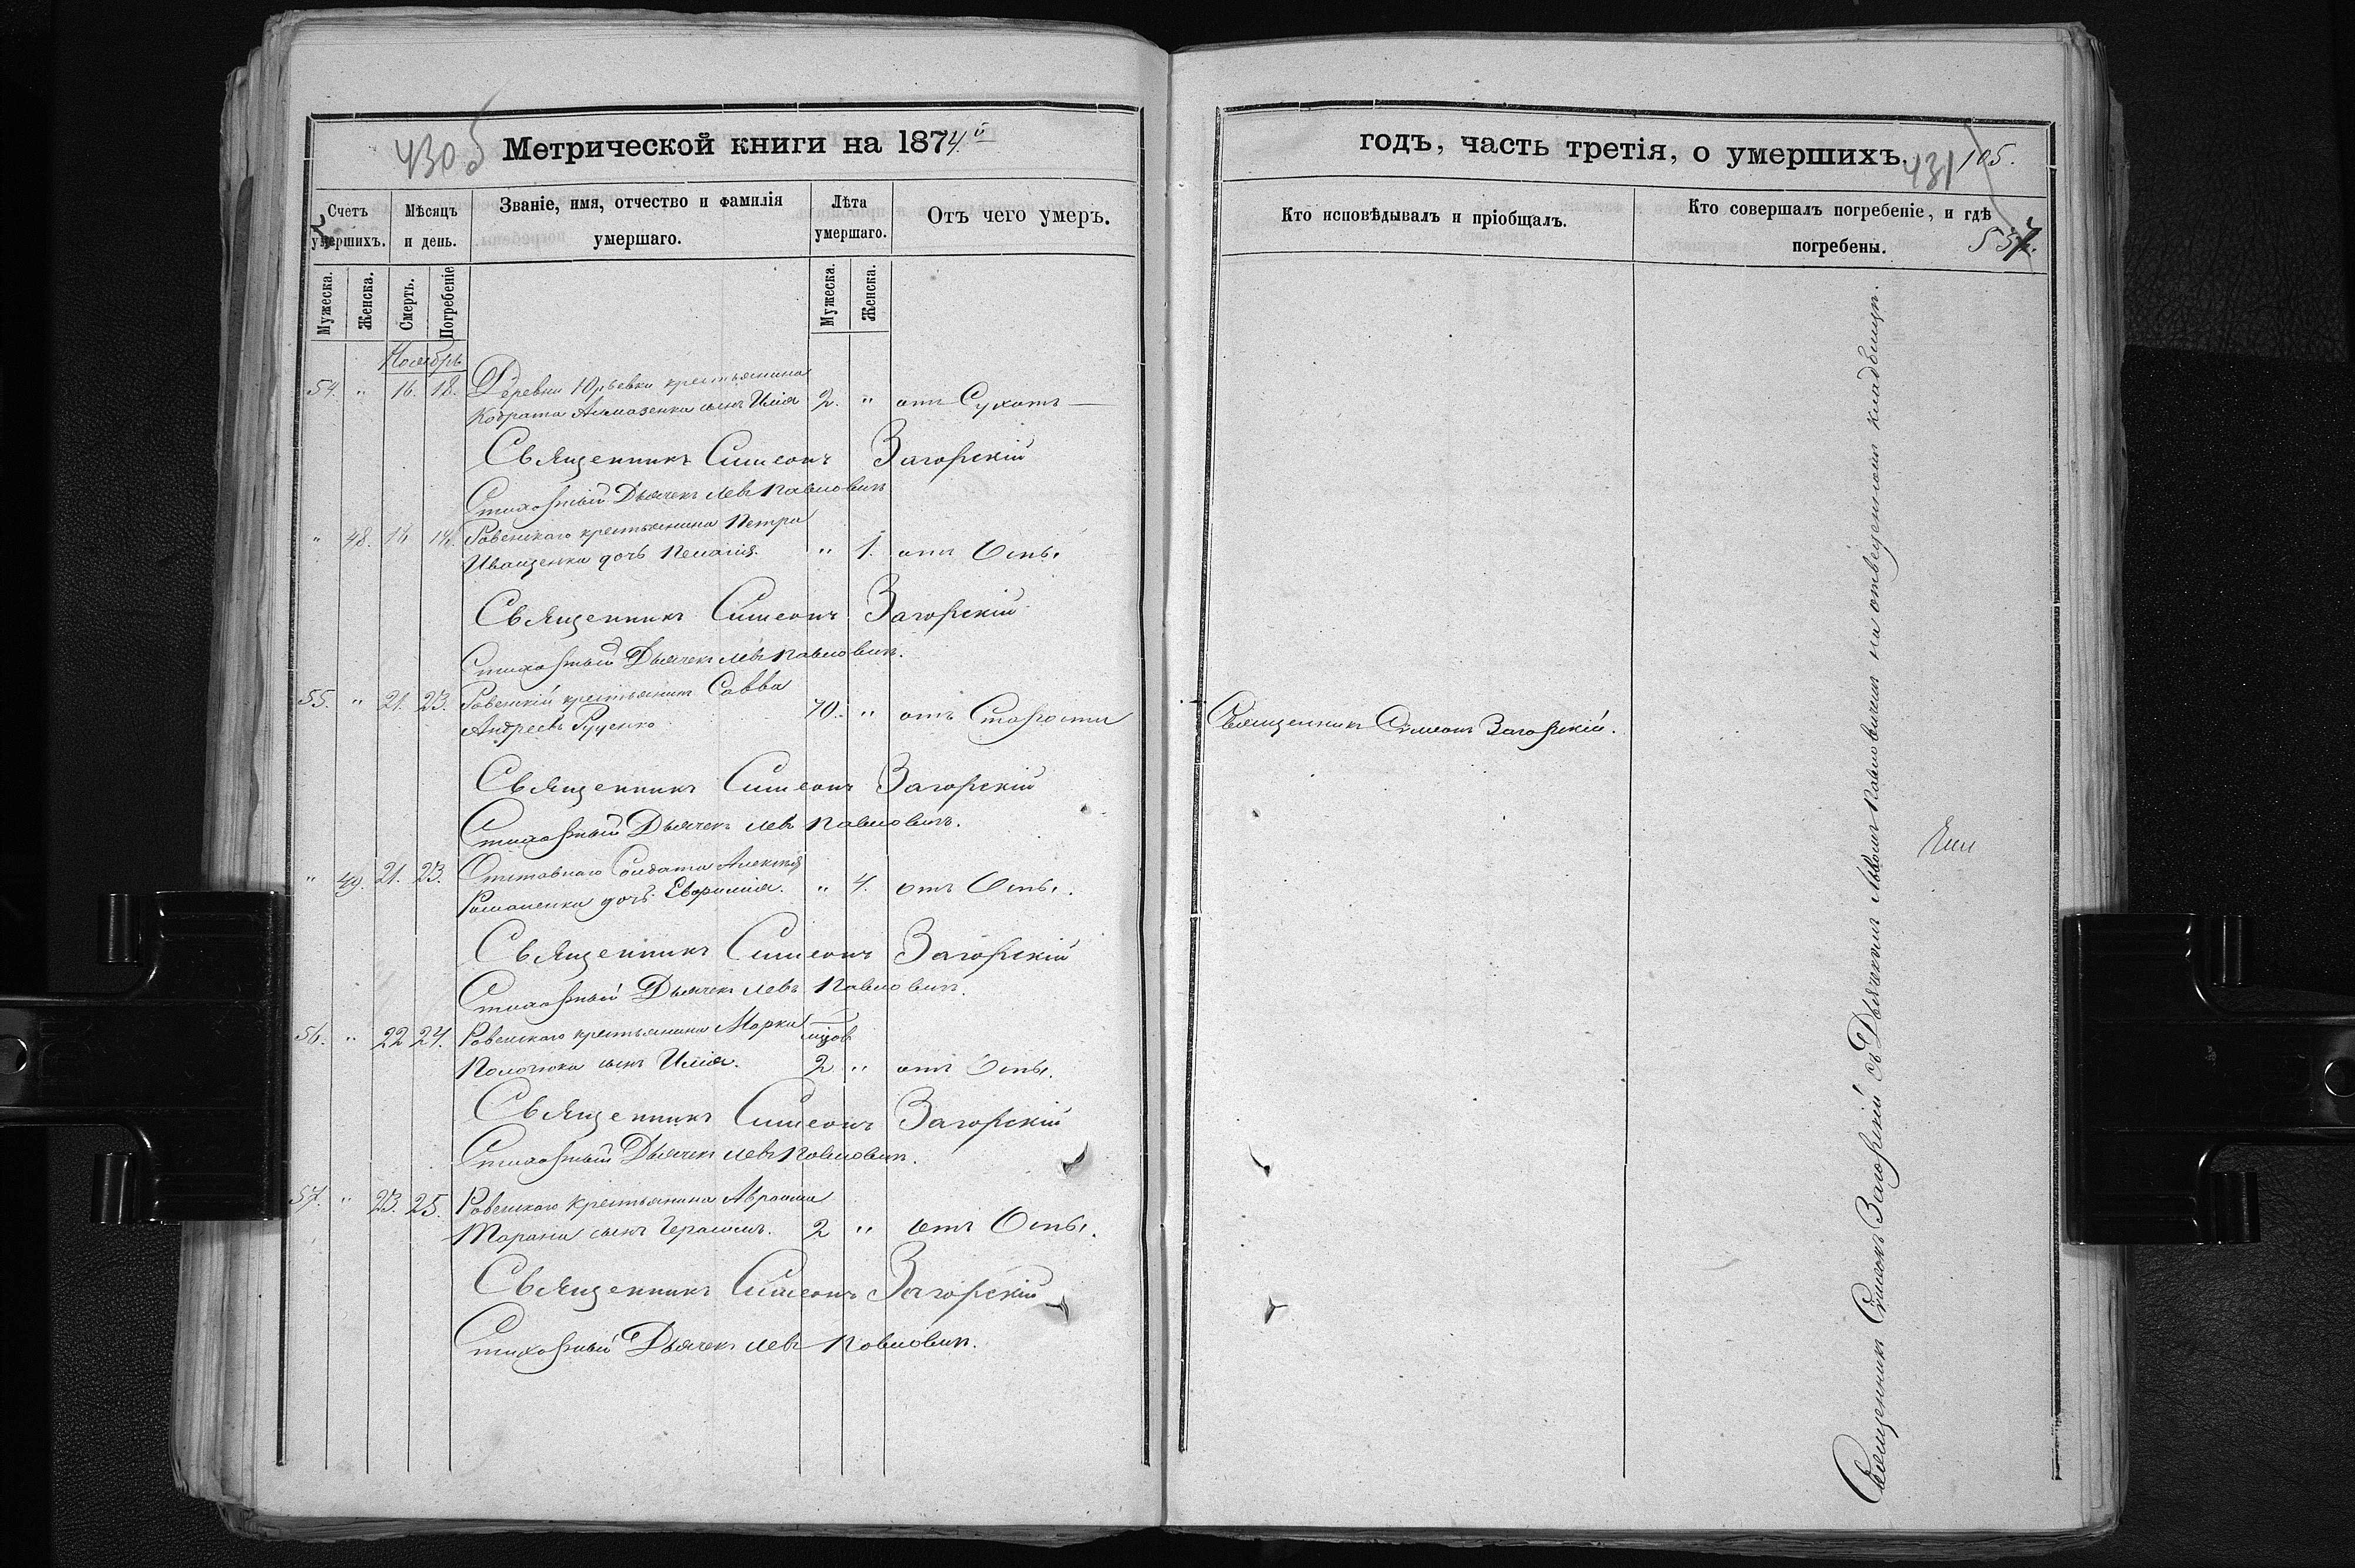 430б
Метрической книги на 1874й
Счетъ умершихъ.
Мѣсяцъ и день.
Званіе, имя, отчество и фамилія умершаго.
Лѣта умершаго.
Отъ чего умеръ.
Мужеска.
Женска.
Смерть.
Погребеніе
Мужеска.
Женска.
Ноябрь
54. " 16. 18. Деревни Юрьевки крестьянина
Кодрата Алмазенка сынъ Илія 2. " отъ Сухотъ
Священникъ Симеонъ Загорскій
Стихарный Дьячекъ Левъ Павловичъ
" 48. Ровенскаго крестьянина Петра
Иващенка дочь Пелагія. " 1. отъ Оспы
Священникъ Симеонъ Загорскій
Стихарный Дьячекъ Левъ Павловичъ.
55. " 21. 23. Ровенскій крестьянинъ Савва
Андреевъ Руденко 70. " отъ Старости
Священникъ Симеонъ Загорскій
Стихарный Дьячекъ Левъ Павловичъ.
" 49. 21. 23. Отставнаго Солдата Алексѣя
Романенка дочь Евфимія. " 4. отъ Оспы.
Священникъ Симеонъ Загорскій
Стихарный Дьячекъ Левъ Павловичъ.
56. " 22 24. Ровенскаго крестьянина Марка
сынъ Илія. 2 " отъ Оспы.
Священникъ Симеонъ Загорскій
Стихарный Дьячекъ Левъ Павловичъ.
57. " 23. 25. Ровенскаго крестьянина Авраама
Тарана сынъ Герасимъ. 2 " отъ Оспы.
Священникъ Симеонъ Загорскій
Стихарный Дьячекъ Левъ Павловичъ.
годъ, часть третія, о умершихъ.
431
105.
Кто исповѣдывалъ и пріобщалъ.
Кто совершалъ погребеніе, и гдѣ погребены.
537.
Священникъ Симеонъ Загорскій.
Священникъ Симеонъ Загорскій съ Дьячкомъ Львомъ Павловичемъ на отведенномъ кладбищѣ.